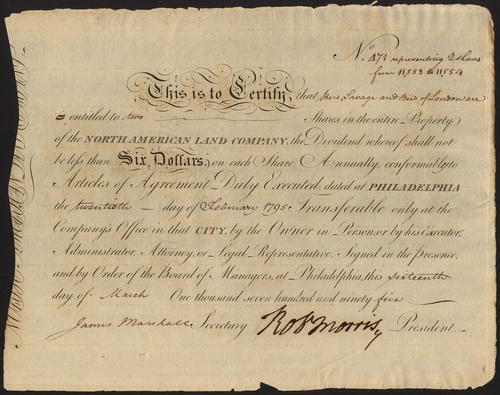 No. 471 representing 2 shares
from 11553 to 11554
This is to Certify, that Bird, Savage and Bird of London are
is entitled to two Shares in the entire Property
of the NORTH AMERICAN LAND COMPANY, the Dividend whereof shall not
be less than Six Dollars, on each Share Annually, conformably to
Articles of Agreement Duly Executed, dated at PHILADELPHIA
the twentieth day of February 1795. Transferable only at the
Company's Office in that CITY, by the Owner in Person, or by his Executor,
Administrator, Attorney, or Legal Representative. Signed in the presence,
and by Order of the Board of Managers, at Philadelphia, this sixteenth
day of March One thousand seven hundred and ninety five
James Marshall Secretary Robt Morris President